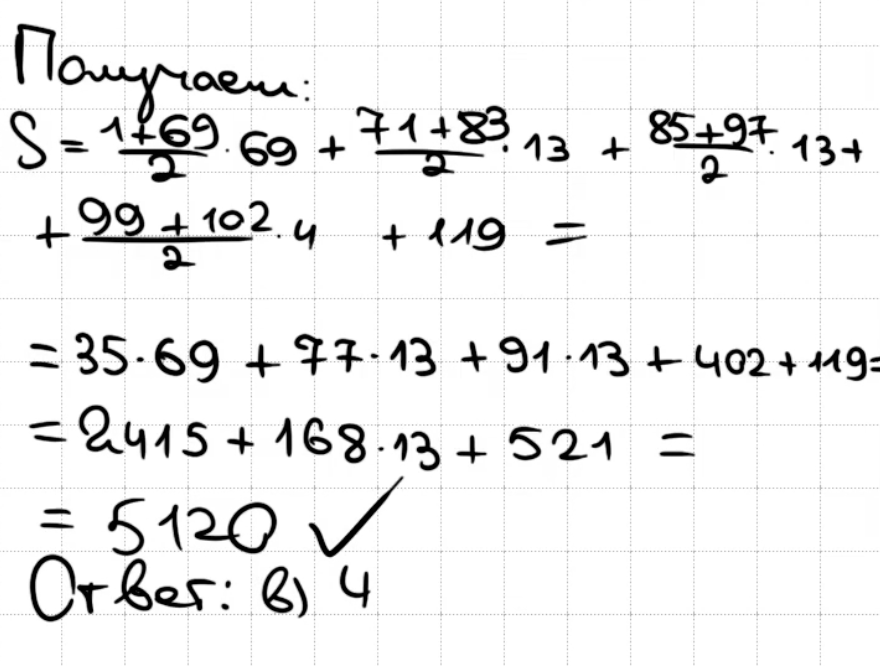 Получаем:
S = \frac{1+69}{2} · 69 + \frac{71+83}{2} · 13 + \frac{85+97}{2} · 13 +
+ \frac{99+102}{2} · 4 + 119 =
= 35 · 69 + 77 · 13 + 91 · 13 + 402 + 119 =
= 2415 + 168 · 13 + 521 =
= 5120 ✓
Ответ: в) 4